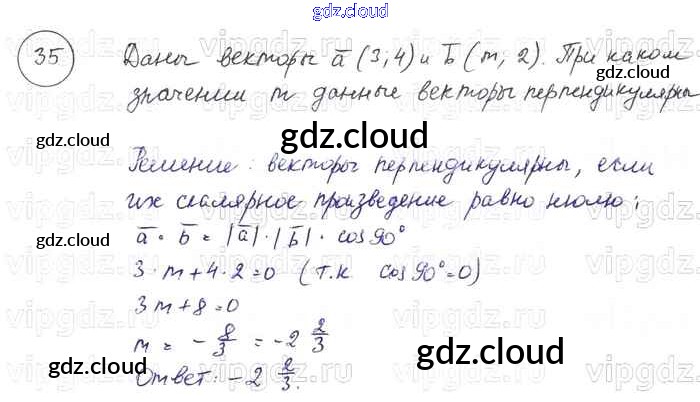 gdz.cloud
35 Даны векторы a̅ (3;4) и b̅ (m; 2). При каком
значении m данные векторы перпендикулярны
gdz.cloud
gdz.cloud
gdz.cloud
Решение: векторы перпендикулярны, если
их скалярное произведение равно нюлю;
gdz.cloud
gdz.cloud
a̅ · b̅ = |a̅| · |b̅| · cos 90°
3 · m + 4 · 2 = 0 (т.к cos 90° = 0)
3m + 8 = 0
m = - 8/3 = -2 2/3
gdz.cloud
gdz.cloud
Ответ: -2 2/3.